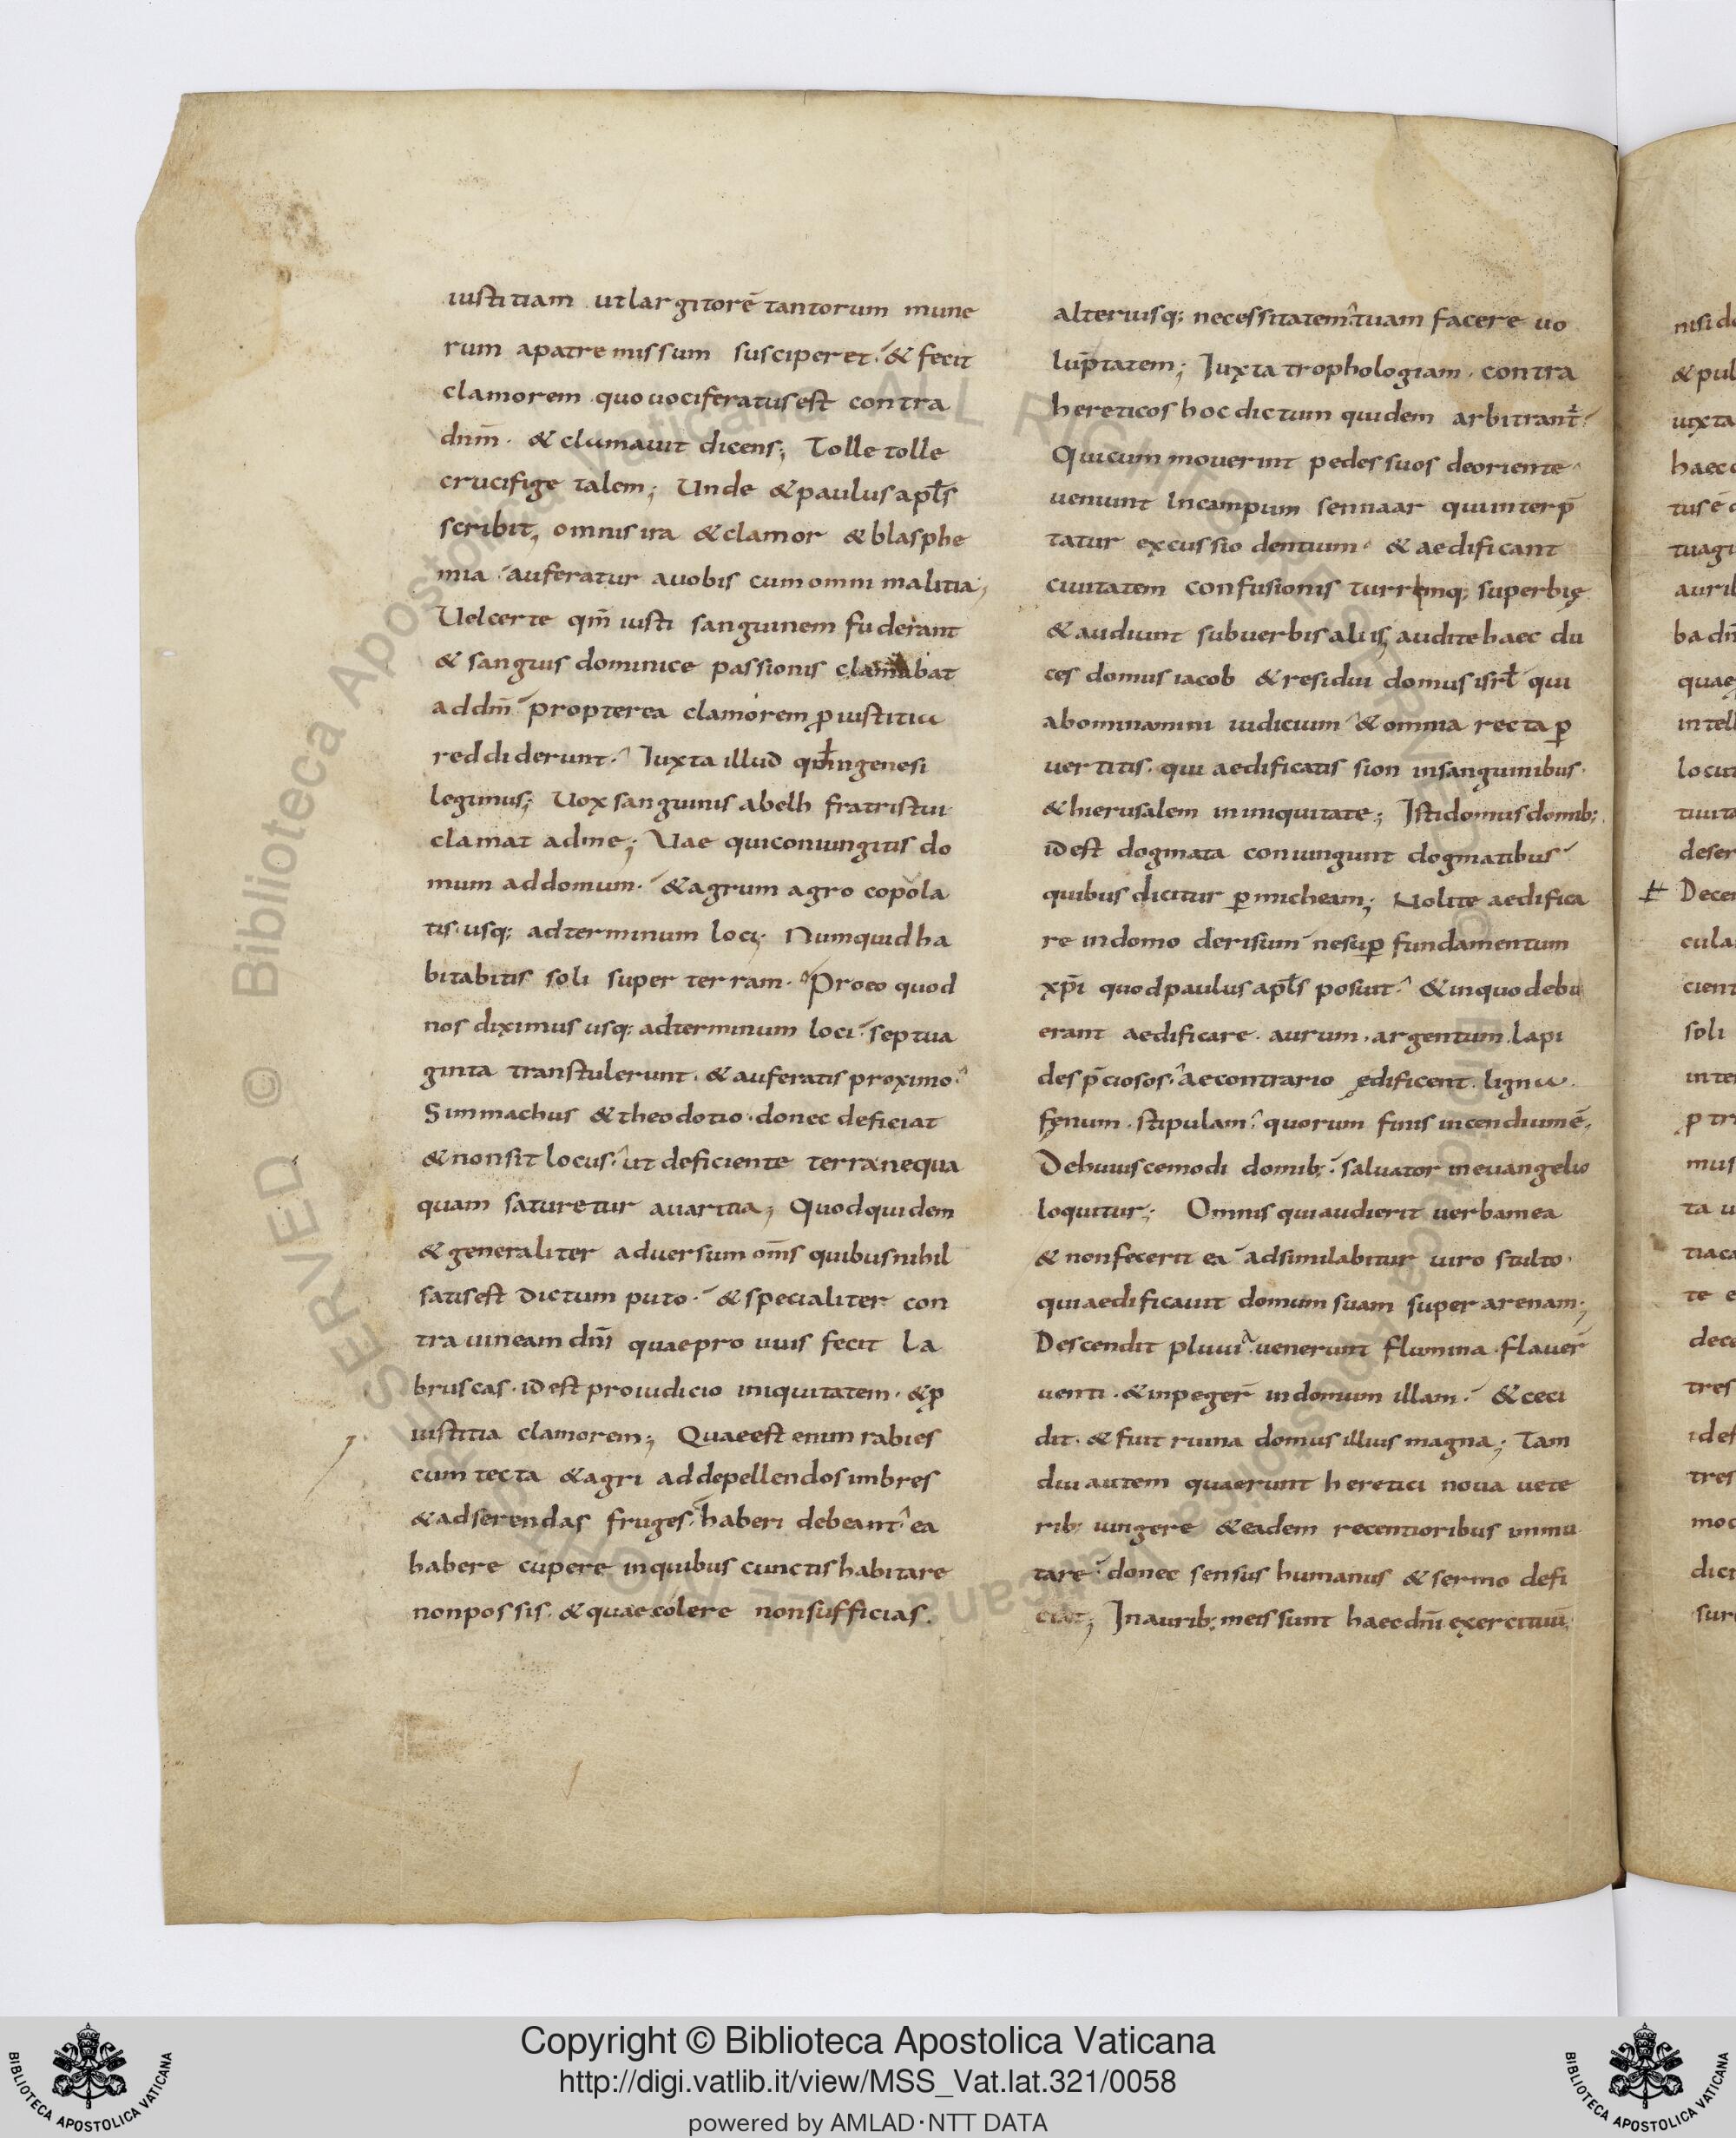 iustitiam ut largitorē tantorum mune
rum apatre missum susciperet. & fecit
clamorem quo uociferatus est contra
dnm̄. & clamauit dicens; Tolle tolle
crucifige talem; Unde & paulus apłs
scribit, omnis ira & clamor & blasphe
mia auferatur auobis cum omni malitia;
Uel certe qm̄ iusti sanguinem fuderant
& sanguis dominice passionis clamabat
ad dm̄ propterea clamorem ꝓ iustitia
reddiderunt. Iuxta illud in genesi
legimus; Uox sanguinis abelh fratris tui
clamat ad me; Uae qui coniungitis do
mum ad domum. & agrum agro copola
tis usq; ad terminum loci; Numquid ha
bitabitis soli super terram. Pro eo quod
nos diximus usq; ad terminum loci septua
ginta transtulerunt. & auferatis proximo.
Simmachus & theodotio. donec deficiat
& non sit locus. ut deficiente terra nequa
quam saturetur auaritia; Quod quidem
& generaliter aduersum om̄s quibus nihil
satis est dictum puto. & specialiter con
tra uineam dn̄i quae pro uuis fecit la
bruscas. id est pro iudicio iniquitatem. & ꝓ
iustitia clamorem; Quae est enim rabies
cum tecta & agri ad depellendos imbres
& ad serendas fruges haberi debeant. ea
habere cupere in quibus cunctis habitare
non possis. & quae colere non sufficias.
alteriusq; necessitatem tuam facere uo
luptatem; Iuxta trophologiam. contra
hereticos hoc dictum quidem arbitrant̄
Qui cum mouerint pedes suos de oriente
ueniunt in campum sennaar qui interp̄
tatur excussio dentium. & aedificant
ciuitatem confusionis turremq; superbię
& audiunt sub uerbis aliis, audite haec du
ces domus iacob & residui domus isrł qui
abominamini iudicium & omnia recta ꝑ
uertitis. qui aedificatis sion in sanguinibus.
& hierusalem in iniquitate; Isti domus domib;
id est dogmata coniungunt dogmatibus
quibus dicitur ꝑ micheam; Nolite aedifica
re in domo derisum ne suꝑ fundamentum
xp̄i quod paulus apłs posuit. & in quo debu
erant aedificare. aurum. argentum. lapi
des p̄ciosos. ae contrario ędificent. ligna.
fęnum. stipulam. quorum finis incendium ē.
De huiuscemodi domib; saluator in euangelio
loquitur; Omnis qui audierit uerba mea
& non fecerit ea adsimilabitur uiro stulto.
qui aedificauit domum suam super arenam;
Descendit pluuia. uenerunt flumina. flauer̄
uenti. & inpeger̄ in domum illam. & ceci
dit. & fuit ruina domus illius magna; Tam
diu autem quaerunt heretici noua uete
rib; iungere & eadem recentioribus inmu
tare. donec sensus humanus & sermo defi
ciat; In aurib; meis sunt haec dn̄i exercituū.
Copyright © Biblioteca Apostolica Vaticana
http://digi.vatlib.it/view/MSS_Vat.lat.321/0058
powered by AMLAD·NTT DATA
BIBLIOTECA APOSTOLICA VATICANA
BIBLIOTECA APOSTOLICA VATICANA